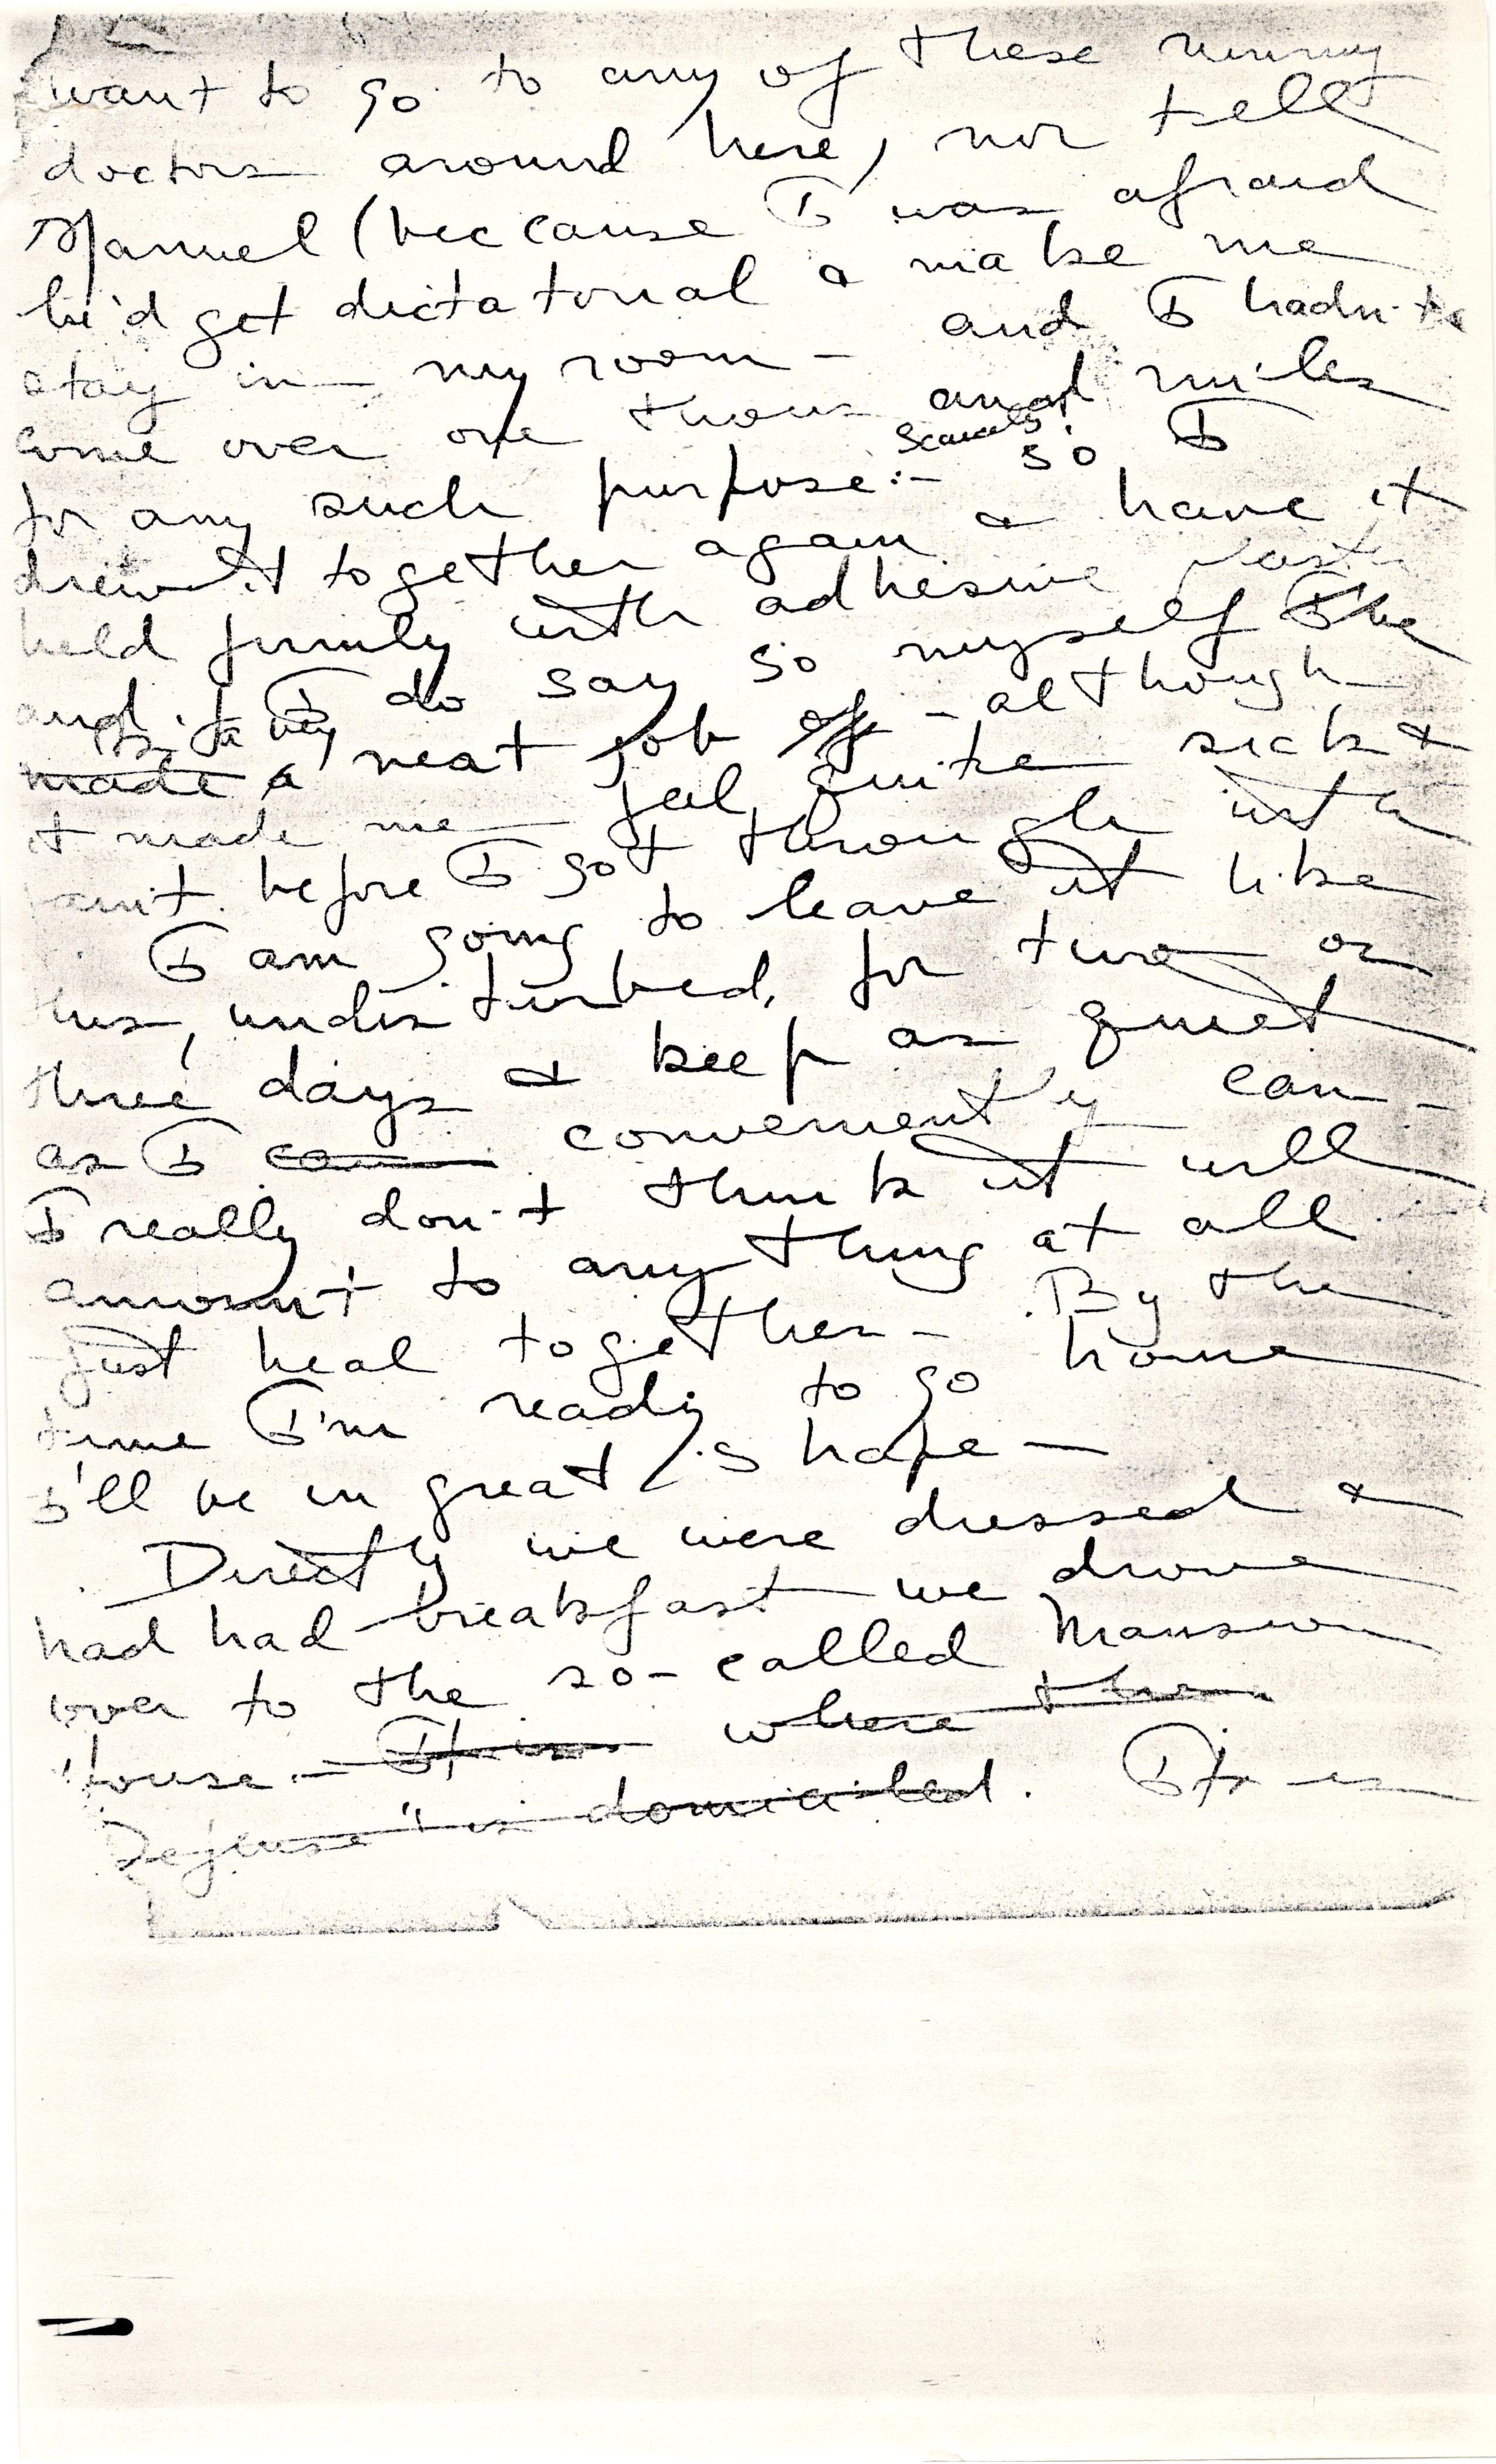 want to go to any of these ninny
doctors around here, nor tell
Manuel (beccause I was afraid
he'd get dictatorial & make me
stay in my room - and I hadn't
come over one thousand miles
for any such purpose:- so I
drew it together again & have it
held firmly with adhesive plaster
and if I do say so myself I've
made a neat job of - although
it made me feel quite sick &
faint before I got through with
I am going to leave it like
this, undisturbed, for two or
three days & keep as quiet
as I can conveniently can -
I really don't think it will
amount to anything at all
just heal together - By the
time I'm ready to go home
I'll be in great shape -
Directly we were dressed &
had had breakfast we drove
over to the so-called Mansion
House - It is where the
is domiciled. It is